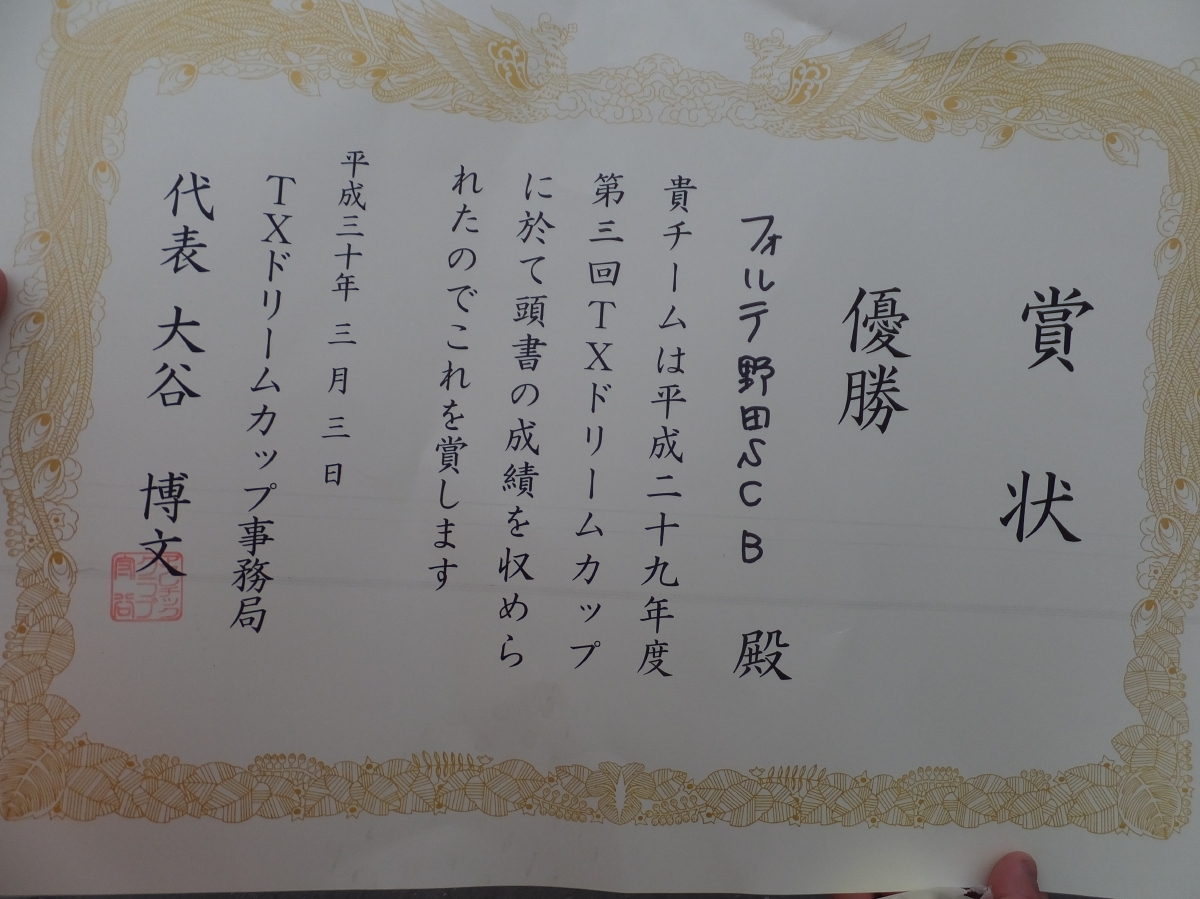 賞状
優勝
フォルテ野田SCB 殿
貴チームは平成二十九年度
第三回TXドリームカップ
に於て頭書の成績を収めら
れたのでこれを賞します
平成三十年 三月三日
TXドリームカップ事務局
代表 大谷 博文